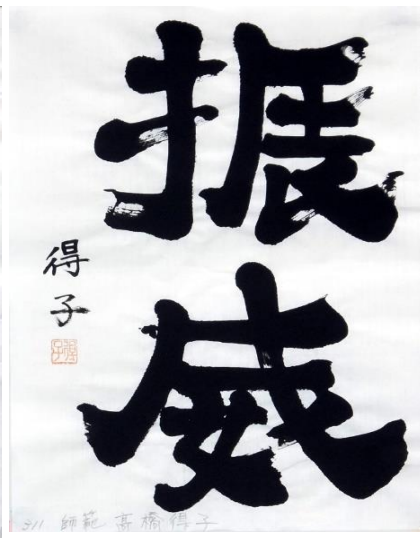 振威
得子
得子
311 師範 高橋得子